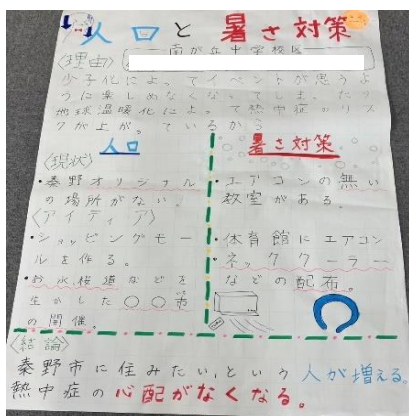 人口と暑さ対策
南が丘中学校区
〈理由〉
少子化によってイベントが思うよ
うに楽しめなくなってしまったり
地球温暖化によって熱中症のリス
クが上がっているから
人口
〈現状〉
・秦野オリジナル
の場所がない。
〈アイディア〉
・ショッピングモー
ルを作る。
・お水、桜道などを
生かした〇〇市
の開催。
暑さ対策
・エアコンの無い
教室がある。
・体育館にエアコン
・ネッククーラー
などの配布。
〈結論〉
秦野市に住みたい、という人が増える。
熱中症の心配がなくなる。